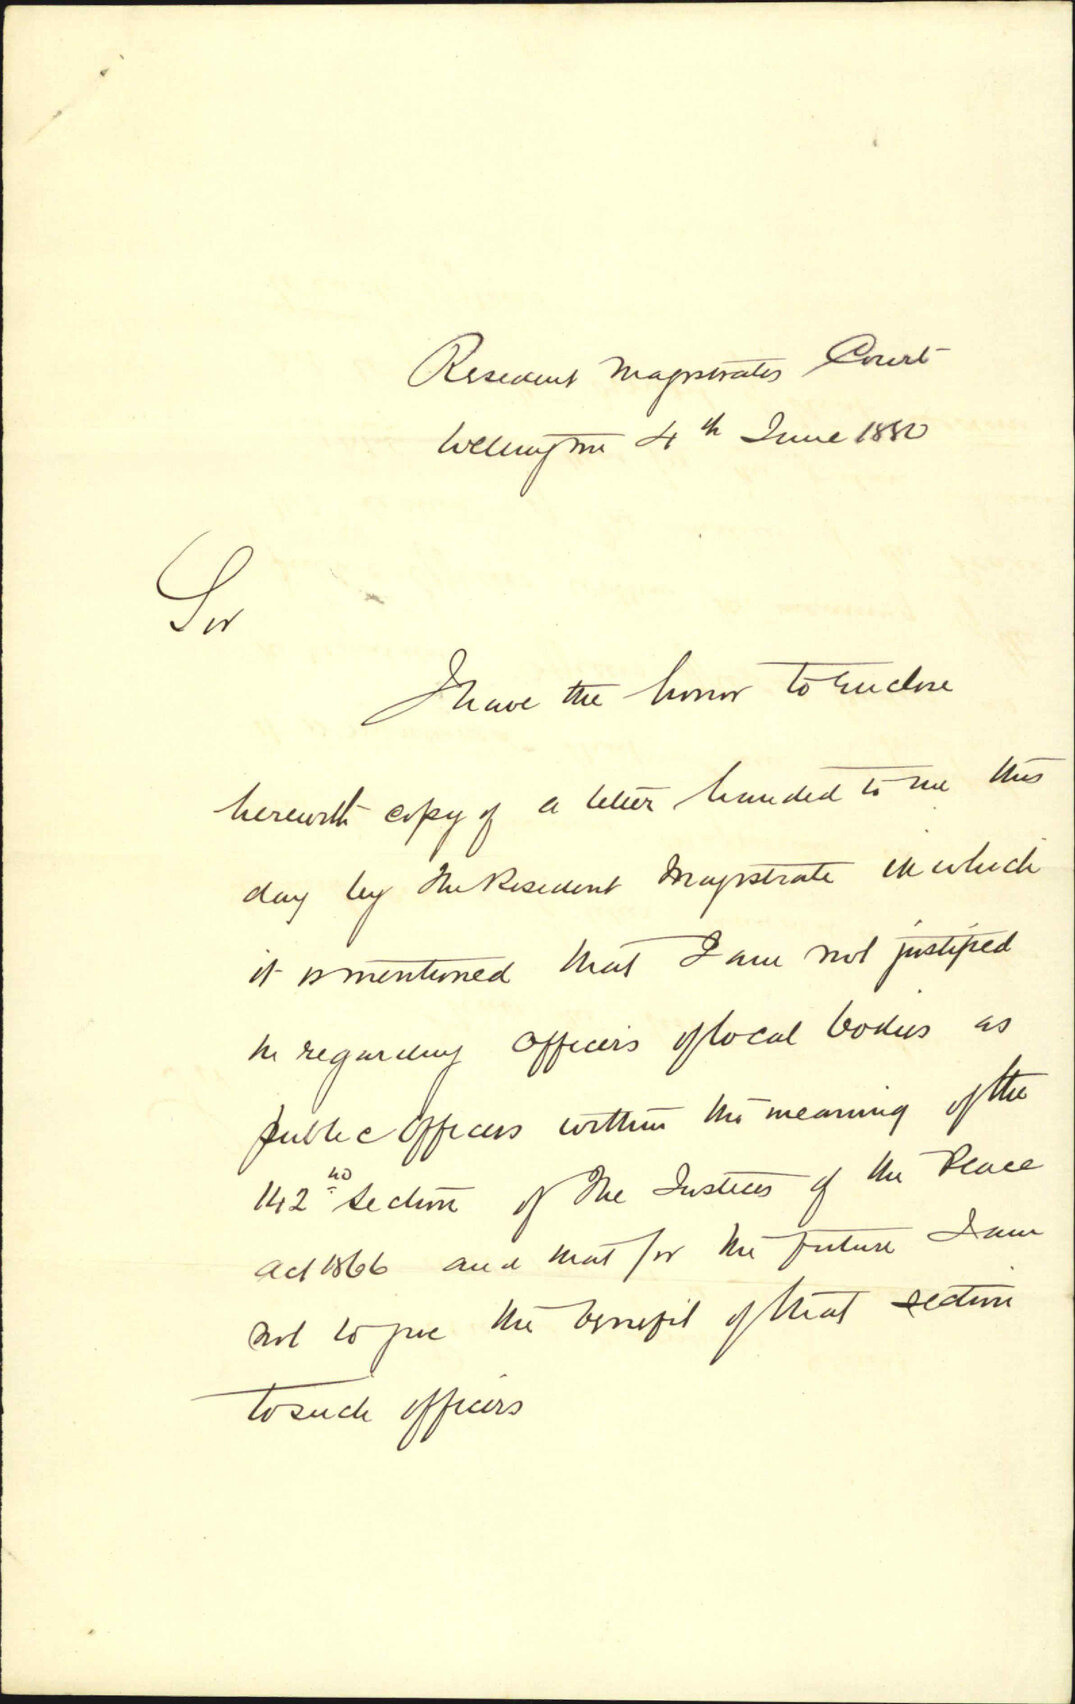 Resident Magistrates Court
Wellington 4th June 1880
Sir
I have the honor to enclose
herewith copy of a letter handed to me this
day by the Resident Magistrate in which
it is mentioned that I am not justified
in regarding officers of local bodies as
public officers within the meaning of the
142nd section of the Justices of the Peace
Act 1866 and that for the future I am
not to give the benefit of that section
to such officers